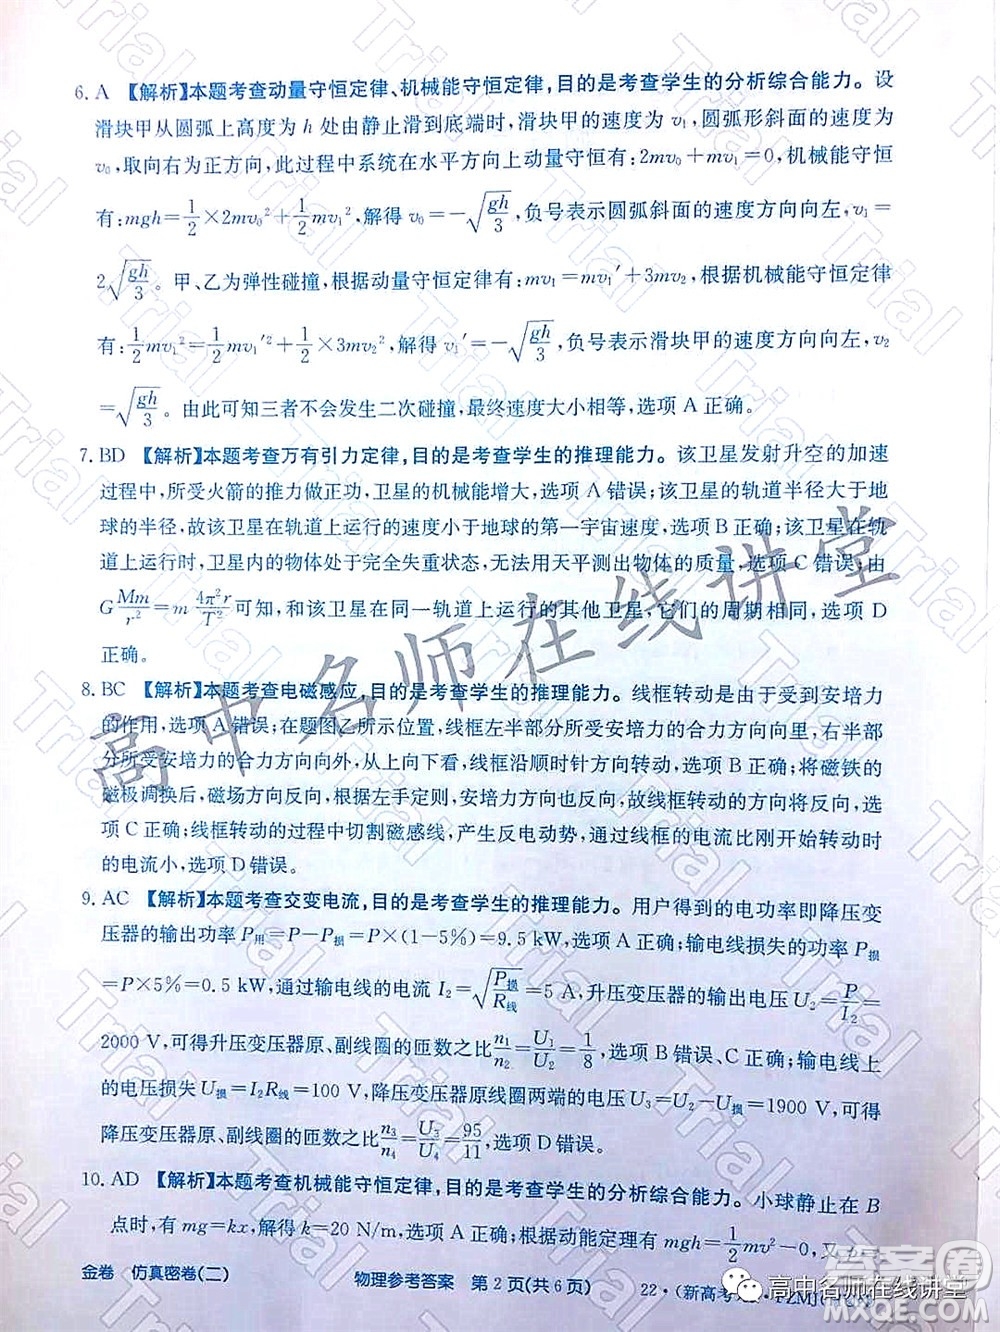 6. A 【解析】本题考查动量守恒定律、机械能守恒定律，目的是考查学生的分析综合能力。设
滑块甲从圆弧上高度为 h 处由静止滑到底端时，滑块甲的速度为 v₁，圆弧形斜面的速度为
v₀，取向右为正方向，此过程中系统在水平方向上动量守恒有：2mv₀+mv₁=0，机械能守恒
有：mgh=1/2×2mv₀²+1/2mv₁²，解得 v₀=-√(gh/3)，负号表示圆弧斜面的速度方向向左，v₁=
2√(gh/3)。甲、乙为弹性碰撞，根据动量守恒定律有：mv₁=mv₁′+3mv₂，根据机械能守恒定律
有：1/2mv₁²=1/2mv₁′²+1/2×3mv₂²，解得 v₁′=-√(gh/3)，负号表示滑块甲的速度方向向左，v₂
=√(gh/3)。由此可知三者不会发生二次碰撞，最终速度大小相等，选项 A 正确。
7. BD 【解析】本题考查万有引力定律，目的是考查学生的推理能力。该卫星发射升空的加速
过程中，所受火箭的推力做正功，卫星的机械能增大，选项 A 错误；该卫星的轨道半径大于地
球的半径，故该卫星在轨道上运行的速度小于地球的第一宇宙速度，选项 B 正确；该卫星在轨
道上运行时，卫星内的物体处于完全失重状态，无法用天平测出物体的质量，选项 C 错误；由
G Mm/r²=m 4π²r/T² 可知，和该卫星在同一轨道上运行的其他卫星，它们的周期相同，选项 D
正确。
8. BC 【解析】本题考查电磁感应，目的是考查学生的推理能力。线框转动是由于受到安培力
的作用，选项 A 错误；在题图乙所示位置，线框左半部分所受安培力的合力方向向里，右半部
分所受安培力的合力方向向外，从上向下看，线框沿顺时针方向转动，选项 B 正确；将磁铁的
磁极调换后，磁场方向反向，根据左手定则，安培力方向也反向，故线框转动方向改变，选项
C 正确；线框转动的过程中切割磁感线，产生反电动势，通过线框的电流比刚开始转动时
的电流小，选项 D 错误。
9. AC 【解析】本题考查交变电流，目的是考查学生的推理能力。用户得到的电功率即降压变
压器的输出功率 P用=P-P损=P×(1-5%)=9.5 kW，选项 A 正确；输电线损失的功率 P损
=P×5%=0.5 kW，通过输电线的电流 I₂=√(P损/R线)=5 A，升压变压器的输出电压 U₂=P/I₂=
2000 V，可得升压变压器原、副线圈的匝数之比 n₁/n₂=U₁/U₂=1/8，选项 B 错误、C 正确；输电线上
的电压损失 U损=I₂R线=100 V，降压变压器原线圈两端的电压 U₃=U₂-U损=1900 V，可得
降压变压器原、副线圈的匝数之比 n₃/n₄=U₃/U₄=95/11，选项 D 错误。
10. AD 【解析】本题考查机械能守恒定律，目的是考查学生的分析综合能力。小球静止在 B
点时，有 mg=kx，解得 k=20 N/m，选项 A 正确；根据动能定理有 mgh=1/2mv²-0，又
金卷 仿真密卷(二) 物理参考答案 第 2 页(共 6 页) 22·(新高考
高中名师在线讲堂
高中名师在线讲堂
答案圈
MXQE.COM
Trial